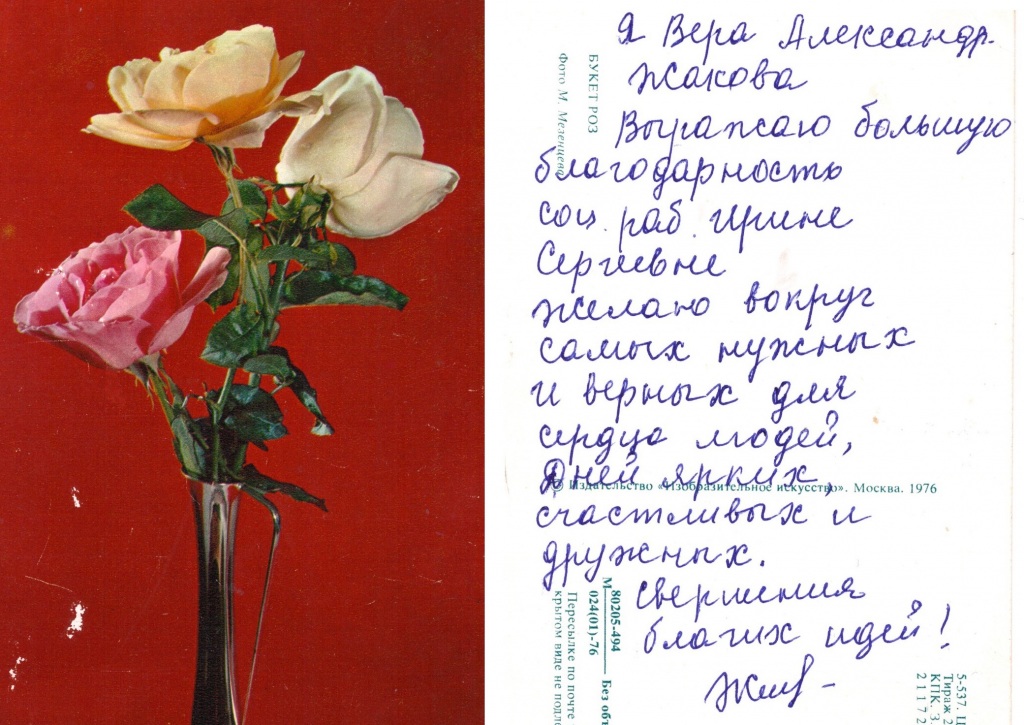 Я Вера Александр.
Жакова
Выражаю большую
благодарность
соц. раб. Ирине
Сергеевне
желаю вокруг
самых нужных
и верных для
сердца людей,
Дней ярких,
счастливых и
дружных.
свершения
благих идей!
БУКЕТ РОЗ
Фото М. Мезенцева
© Издательство «Изобразительное искусство». Москва. 1976
М 80205-494
024(01)-76
Без объ
Пересылке по почте
крытом виде не подле
5-537. Ц
Тираж 2
КПК. З.
2 1 1 7 2